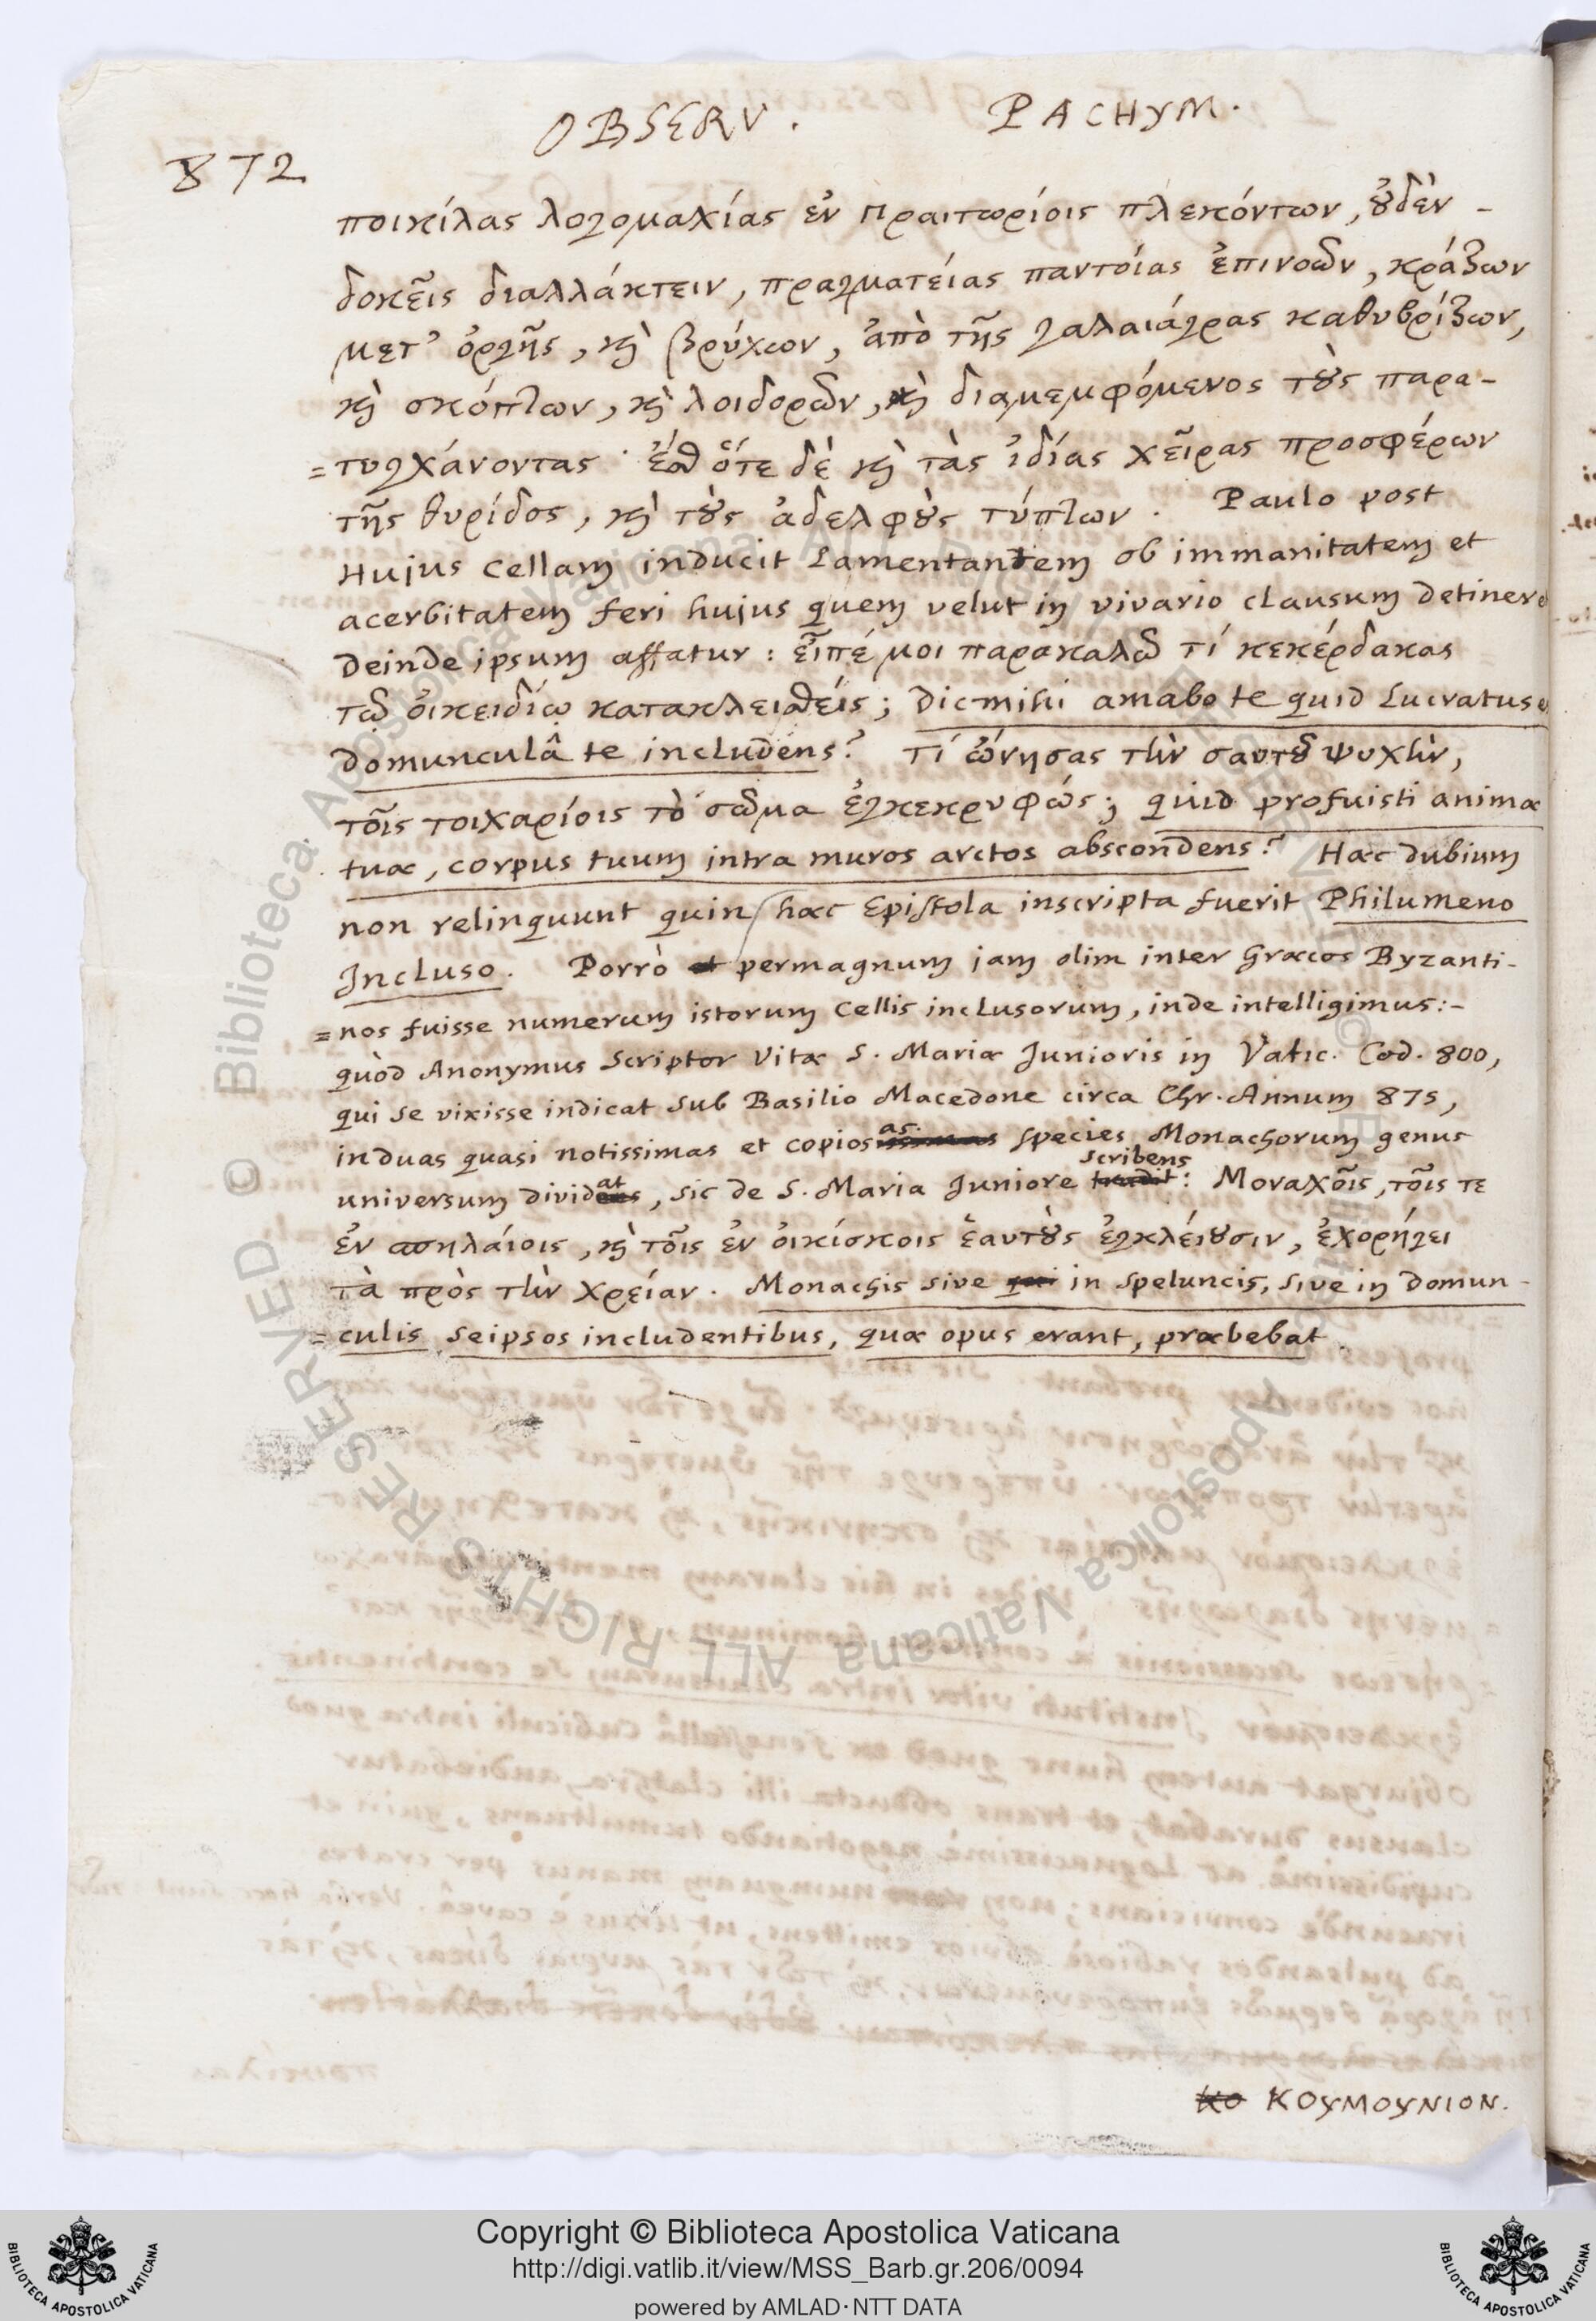 OBSERV. PACHYM.
872
ποικίλας λογομαχίας ἐν πραιτωρίοις πλεκόντων, οὐδὲν -
δοκεῖς διαλλάκτειν, πραγματείας παντοίας ἐπινοῶν, κράζων
μετ' ὀργῆς, καὶ βρύχων, ἀπὸ τῆς γαλαιάγρας καθυβρίζων,
καὶ σκόπτων, καὶ λοιδορῶν, καὶ διαμεμφόμενος τοὺς παρα-
=τυγχάνοντας· ἔσθ ὅτε δὲ καὶ τὰς ἰδίας χεῖρας προσφέρων
τῆς θυρίδος, καὶ τοὺς ἀδελφοὺς τύπτων. Paulo post
Hujus Cellam inducit Lamentantem ob immanitatem et
acerbitatem feri hujus quem velut in vivario clausum detinere
deinde ipsum affatur: εἶπέ μοι παρακαλῶ τί κεκέρδακας
τῶ οἰκειδίῳ κατακλεισθείς; Dic mihi amabo te quid Lucratus e
domunculâ te includens? Τί ὤνησας τὴν σαυτοῦ ψυχὴν,
τοῖς τοιχαρίοις τὸ σῶμα ἐγκεκρυφώς; quid profuisti animæ
tuæ, corpus tuum intra muros arctos abscondens? Hæc dubium
non relinquunt quin hæc Epistola inscripta fuerit Philumeno
Incluso. Porrò et permagnum jam olim inter Græcos Byzanti-
=nos fuisse numerum istorum Cellis inclusorum, inde intelligimus:-
quòd Anonymus Scriptor Vitæ S. Mariæ Junioris in Vatic. Cod. 800,
qui se vixisse indicat sub Basilio Macedone circa Chr. Annum 875,
in duas quasi notissimas et copiosas species Monachorum genus
universum dividat, sic de S. Maria Juniore scribens: Μοναχοῖς, τοῖς τε
ἐν σπηλάιοις, καὶ τοῖς ἐν οἰκίσκοις ἑαυτοὺς ἐγκλείουσιν, ἐχορήγει
τὰ πρὸς τὴν χρείαν. Monachis sive qui in speluncis, sive in domun-
=culis seipsos includentibus, quæ opus erant, præbebat
κο ΚΟΥΜΟΥΝΙΟΝ.
Copyright © Biblioteca Apostolica Vaticana
http://digi.vatlib.it/view/MSS_Barb.gr.206/0094
powered by AMLAD·NTT DATA
BIBLIOTECA APOSTOLICA VATICANA
BIBLIOTECA APOSTOLICA VATICANA